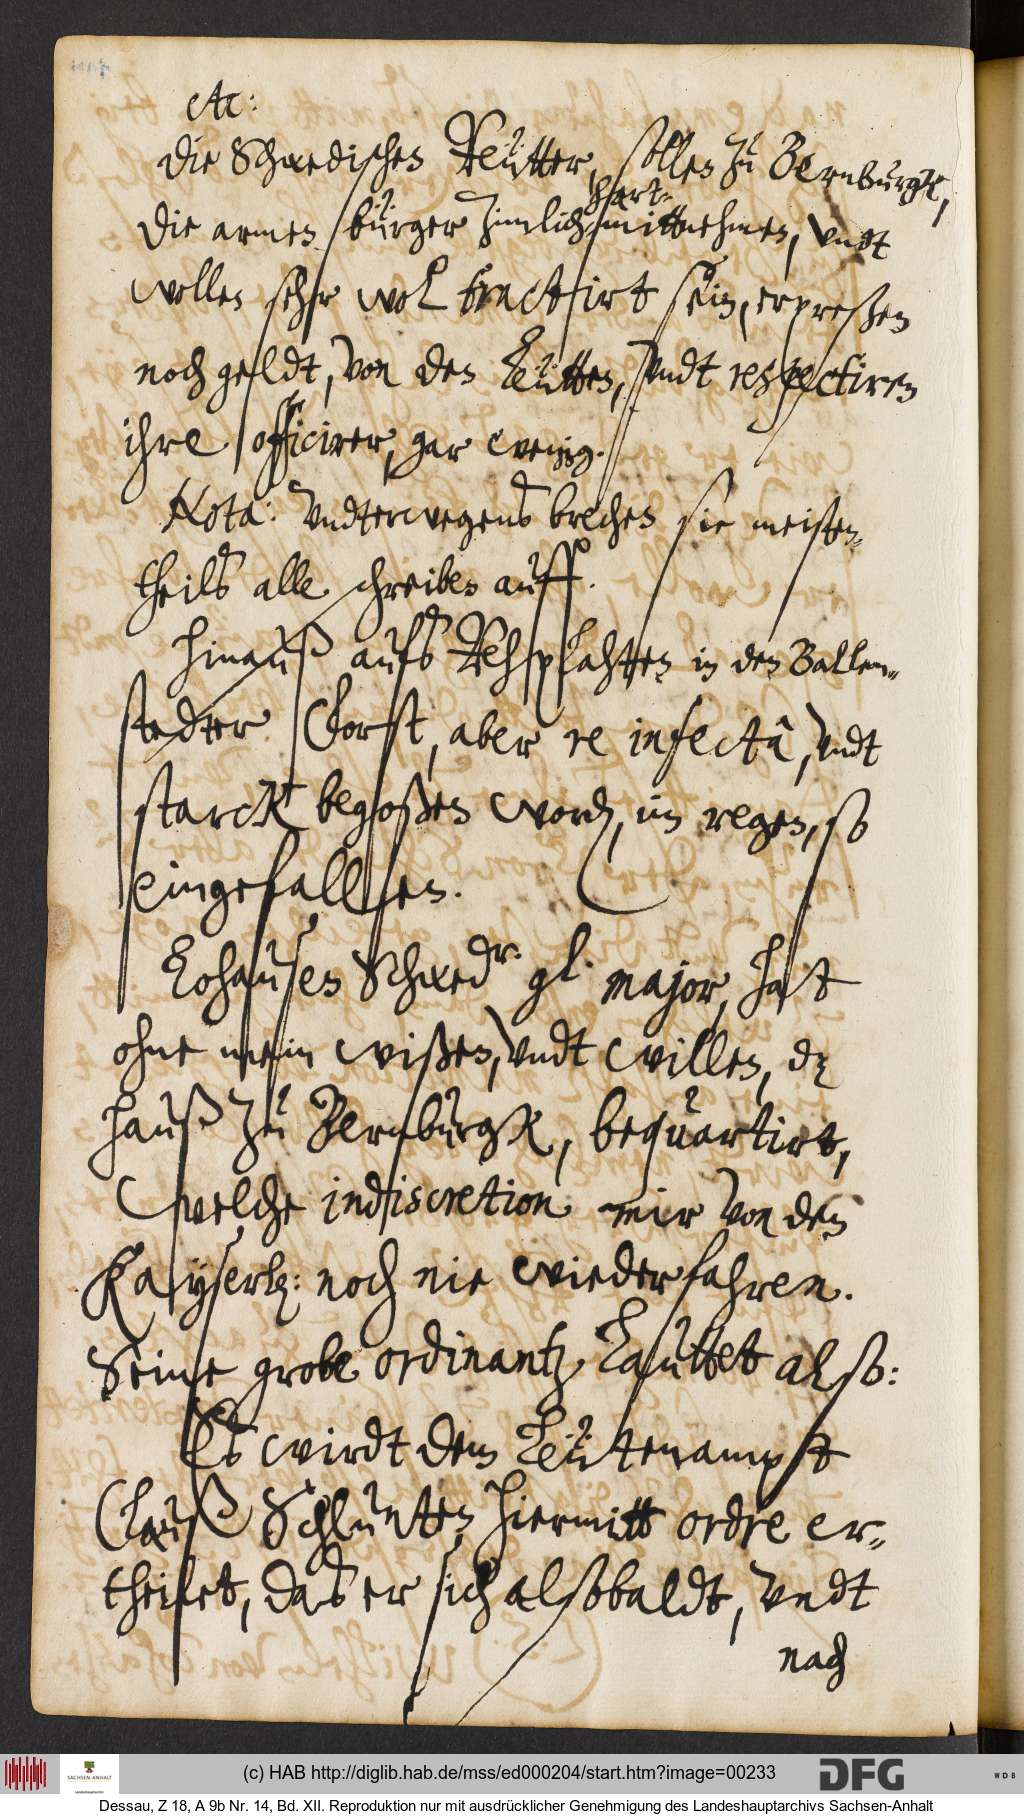 etc:
Die Schwedischen Reütter, sollen zu Bernburgk,
die armen bürger zimlich hart mittnehmen, undt
wollen sehr wol tractirt sein, erpreßen
noch geldt, von den Leütten, undt respectiren
ihre officirer, gar wenig.
Nota: Undterwegens brechen sie meisten-
theils alle schreiben auff.
Hinauß aufs Rehplahtten in den Ballen-
stedter Vorst, aber re infecta, undt
starck begoßen worden, im regen, so
eingefallen.
Lohausen Schwedr. gl. major, hat
ohne mein wißen, undt willen, dz
hauß zu Bernburgk, bequartirt,
welche indiscretion mir von den
Kayserl: noch nie wiederfahren.
Seine grobe ordinantz lauttet also:
Es wirdt dem Leütenampt
Clauß Schlunten hiermitt ordre er-
theilet, das er sich alsobaldt, undt
nach
(c) HAB http://diglib.hab.de/mss/ed000204/start.htm?image=00233
SACHSEN-ANHALT
DFG
WDB
Dessau, Z 18, A 9b Nr. 14, Bd. XII. Reproduktion nur mit ausdrücklicher Genehmigung des Landeshauptarchivs Sachsen-Anhalt